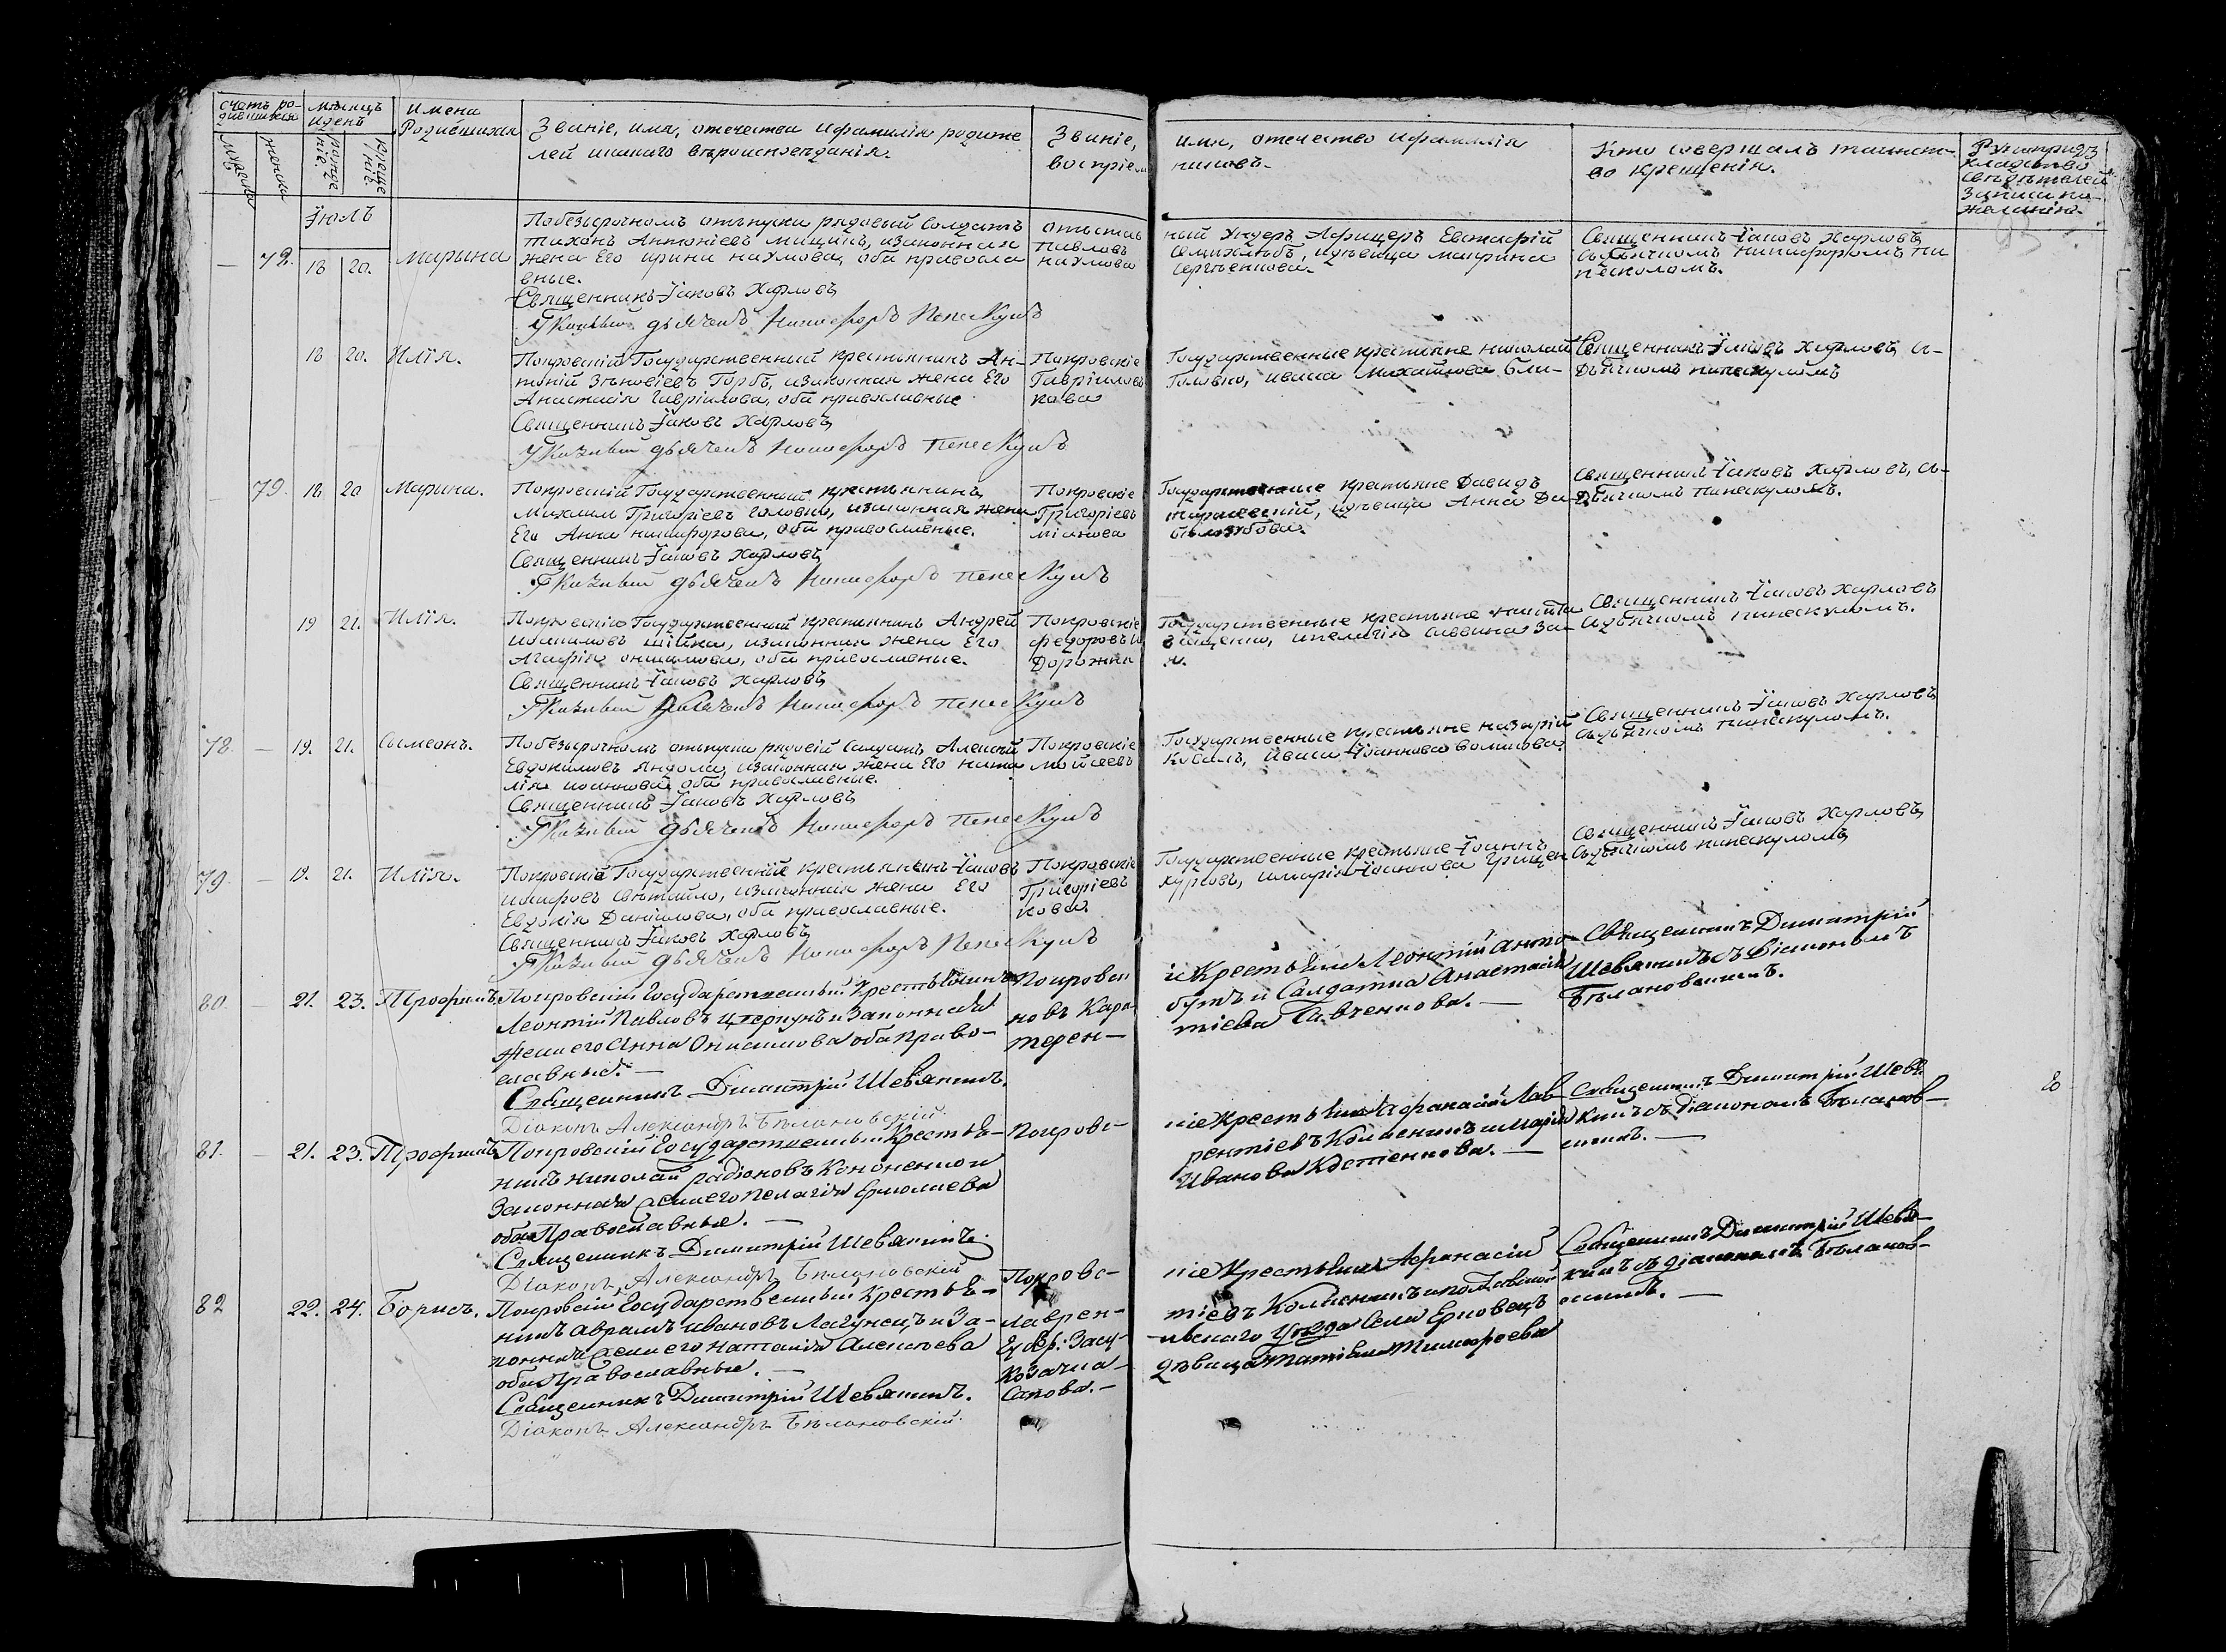 счетъ ро-
дившихся
Мѣсяцъ
и день
Имена
Родившихся
Званіе, имя, отечество и фамилія родите
лей и какаго вѣроисповѣданія.
Званіе,
воспріем
имя, отечество и фамилія
никовъ.
Кто совершалъ таинст-
во крещенія.
Рукоприк
ладство
свѣдѣтелей
записи по
желанію.
Мужеска
женска
рожде
ніе.
креще
ніе.
Іюль
72. 18 20. Марына
По безсрочномъ отъпуски рядовый Солдатъ
Тихонъ Антоніевъ Мицикъ, и законная
жена Его Ирина Наумова, оба правосла
вные.
Священникъ Іаковъ Харловъ
Указный дьячекъ Никифоръ Пепескулъ
отъстав
Павловъ
Наумова
ный Ундеръ Афицеръ Евстафій
Семихлѣбъ, и дѣвица Маврина
Сергѣенкова.
Священникъ Іаковъ Харловъ
съ дьячкомъ Никифоромъ Пи
пескуломъ.
18 20. Илія.
Покровскій Государственный крестьянинъ Ан-
тоній Зѣновіевъ Горбъ, и законная жена Его
Анастасія Гавріилова, оба православные
Священникъ Іаковъ Харловъ
Указный дьячекъ Никифоръ Пепескулъ
Покровскіе
Гавріиловъ
кова
Государственные крестьяне Николай
Головко, Иваса Михайлова Бли-
Священникъ Іаковъ Харловъ с-
дьячкомъ Пипескуломъ
79. 18 20 Марина.
Покровскій Государственный крестьянинъ
Михаилъ Григоріевъ Головко, и законная жена
Его Анна Никифорова, оба православные.
Священникъ Іаковъ Харловъ
Указный дьячекъ Никифоръ Пепескулъ
Покровскіе
Григоріевъ
Государственные крестьяне Давидъ
дѣвица Анна Да-
Бѣлозубова.
Священникъ Іаковъ Харловъ, съ-
дьячкомъ Пипескуломъ.
19 21. Илія.
Покровскій Государственный крестьянинъ Андрей
жена Его
Агафія Онисимова, оба православные.
Священникъ Іаковъ Харловъ
Указный дьячекъ Никифоръ Пепескулъ
Покровскіе
Федоровъ
Дорожки
Государственные крестьяне Никита
и Пелагія Саввина За-
Священникъ Іаковъ Харловъ
съ дьячкомъ Пипескуломъ.
78. — 19. 21. Сымеонъ.
По безсрочномъ отъпуски рядовій Солдатъ Алексій
Евдокимовъ Яндола, и законная жена Его Ната
лія Иоаннова, оба православные.
Священникъ Іаковъ Харловъ
Указный дьячекъ Никифоръ Пепескулъ
Покровскіе
Мойсеевъ
Государственные крестьяне Назарій
Коваль, Иваса Іоаннова Воликова.
Священникъ Іаковъ Харловъ
съ дьячкомъ Пипескуломъ.
79. — 19. 21. Илія.
Покровскій Государственный крестьянинъ Іаковъ
Иосифовъ Свѣтайло, и законная жена Его
Евдокія Даніилова, оба православные.
Священникъ Іаковъ Харловъ
Указный дьячекъ Никифоръ Пепескулъ
Покровскіе
Григоріевъ
кова.
Государственные крестьяне Іоаннъ
Курховъ, и Марія Іоаннова Грицен
Священникъ Іаковъ Харловъ
съ дьячкомъ Пипескуломъ
80. — 21. 23. Трофимъ.
Покровскій Государственный Крестьянинъ
Леонтій Павловъ и Законная
жена его Анна Онисимова оба Право-
славные. —
Священникъ Димитрій Шевякинъ.
Діаконъ Александръ Бѣлоновскій.
Покровск
новъ Кара
терен—
іе Крестьяне Леонтій Анто-
и Салдатка Анастасія
тіева Савченкова. —
Священникъ Димитрій
Шевякинъ съ Діякономъ
Бѣлановскимъ.
81. — 21. 23. Трофимъ
Покровскій Государственный Крестья-
нинъ Николай Радіоновъ Кононенко и
Законная жена его Пелагія Ермолаева
оба Православные. —
Священникъ Димитрій Шевякинъ.
Діаконъ Александръ Бѣлоновскій
Покровс-
кіе Крестьяне Афанасій Лав-
рентіевъ Колисникъ и Марія
Иванова Костенкова. —
Священникъ Димитрій Шевя-
кинъ съ Діакономъ Бѣланов-
скимъ. —
82 22. 24. Борисъ.
Покровскій Государственный Крестья-
нинъ Аврамъ Ивановъ Лагунецъ и За-
конная жена его Наталія Алексѣева
оба Православные. —
Священникъ Димитрій Шевякинъ.
Діаконъ Александръ Бѣлоновскій.
Покровс-
Лаврен-
Козачка-
Сакова. —
кіе Крестьяне Афанасій
тіевъ Колисникъ и Полтавской
-івскаго Уѣзда Села Ерковецъ
дѣвица Татіяна Тимофеева
Священникъ Димитрій Шевя-
кинъ съ діакономъ Бѣланов-
скимъ. —